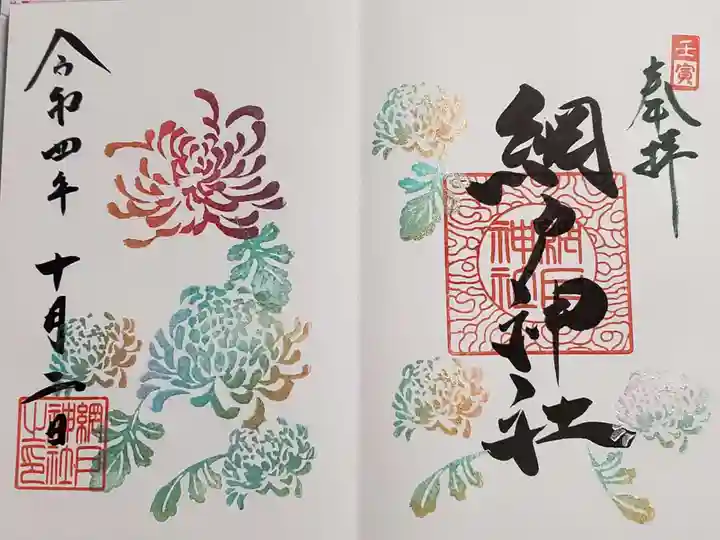 奉拝
壬寅
網戸神社
網戸神社
令和四年 十月二日
網戸神社之印